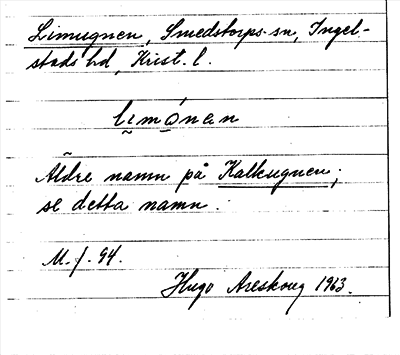 Limugnen, Smedstorps sn, Ingel-
stads hd, Krist. l.
limónen
Äldre namn på Kalkugnen;
se detta namn.
M. f. 94.
Hugo Areskoug 1963.